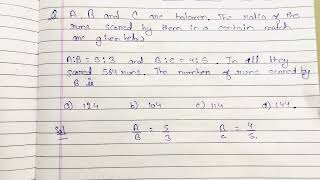 Q A, B and C are batsmen. The ratio of the
runs scored by them in a certain match
are given below
A:B = 5:3 and B:C = 4:5. In all they
scored 564 runs. The number of runs scored by
B is
a) 124 b) 104 c) 114 d) 144.
Sol A/B = 5/3 B/C = 4/5.